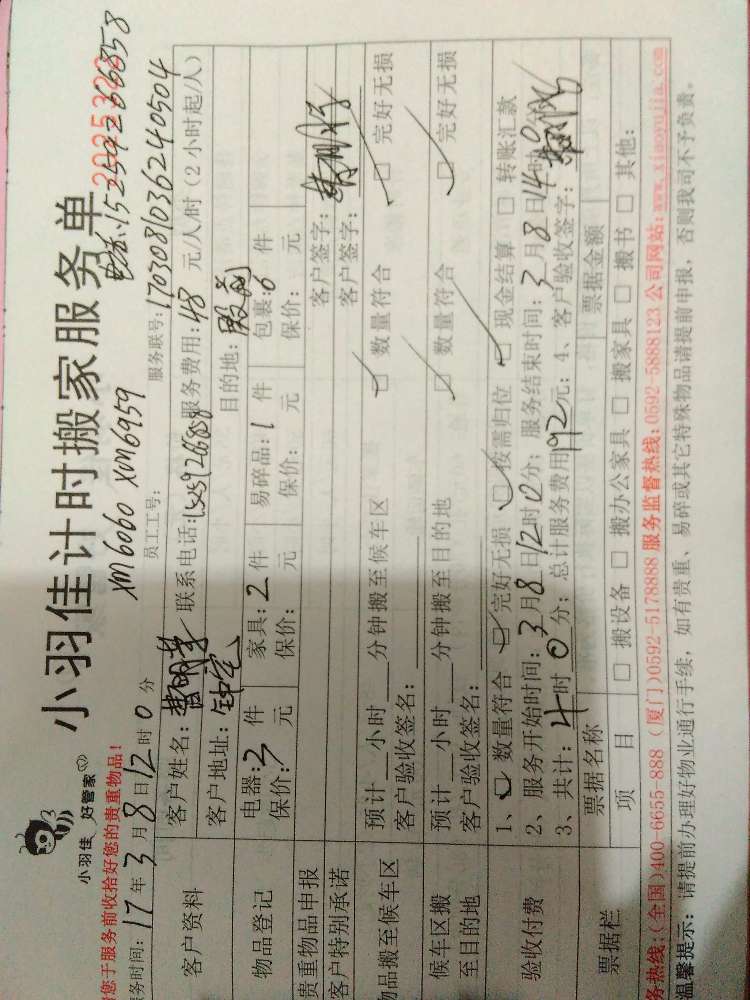 小羽佳 好管家
小羽佳计时搬家服务单
您于服务前收拾好您的贵重物品!
XM6060 XM6959
15259266858
务时间: 17 年 3 月 8 日 12 时 0 分
员工工号:
服务联号: 1703081036240504
客户资料
客户姓名: 联系电话: 15259266858 服务费用: 48 元/人/时 (2 小时起/人)
客户地址: 目的地:
物品登记
电器: 2 件 家具: 2 件 易碎品: 1 件 包裹: 6 件
保价: 元 保价: 元 保价: 元 保价: 元
贵重物品申报 客户签字:
客户特别承诺 客户签字:
物品搬至候车区
预计 小时 分钟搬至候车区 数量符合 完好无损
客户验收签名:
候车区搬至目的地
预计 小时 分钟搬至目的地 数量符合 完好无损
客户验收签名:
验收付费
1、 数量符合 完好无损 按需归位 现金结算 转账汇款
2、服务开始时间: 3 月 8 日 12 时 0 分; 服务结束时间: 3 月 8 日 14 时 0 分
3、共计: 4 时 0 分; 总计服务费用 192 元; 4、客户验收签字:
票据栏
票据名称 票据金额
项 目 搬设备 搬办公家具 搬家具 搬书 其他:
务热线: (全国)400-6655-888 (厦门)0592-5178888 服务监督热线: 0592-5888123 公司网站: www.xiaoyujia.com
温馨提示: 请提前办理好物业通行手续, 如有贵重、易碎或其它特殊物品请提前申报, 否则我司不予负责。